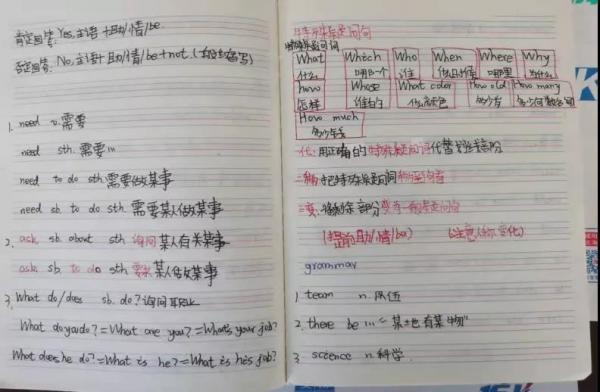 肯定回答: Yes, 主语+助/情/be.
否定回答: No, 主语+助/情/be+not. (缩写)
1. need v. 需要
need sth. 需要…
need to do sth. 需要做某事
need sb. to do sth. 需要某人做某事
2. ask sb. about sth. 询问某人有关某事
ask sb. to do sth. 要求某人做某事
3. What do/does sb. do? 询问职业
What do you do? = What are you? = What's your job?
What does he do? = What is he? = What is his job?
特殊疑问句
特殊疑问词
What Which Who When Where Why
什么 哪一个 谁 什么时候 哪里 为什么
how Whose What color How old How many
怎样 谁的 什么颜色 多少岁 多少
How much
多少钱
一代: 用正确的特殊疑问词代替划线部分
二移: 把特殊疑问词移至句首
三变: 将剩余部分变为一般疑问句
(提前助/情/be) (注意人称变化)
grammar
1 team n. 队伍
2. there be … "某地有某物"
3. science n. 科学